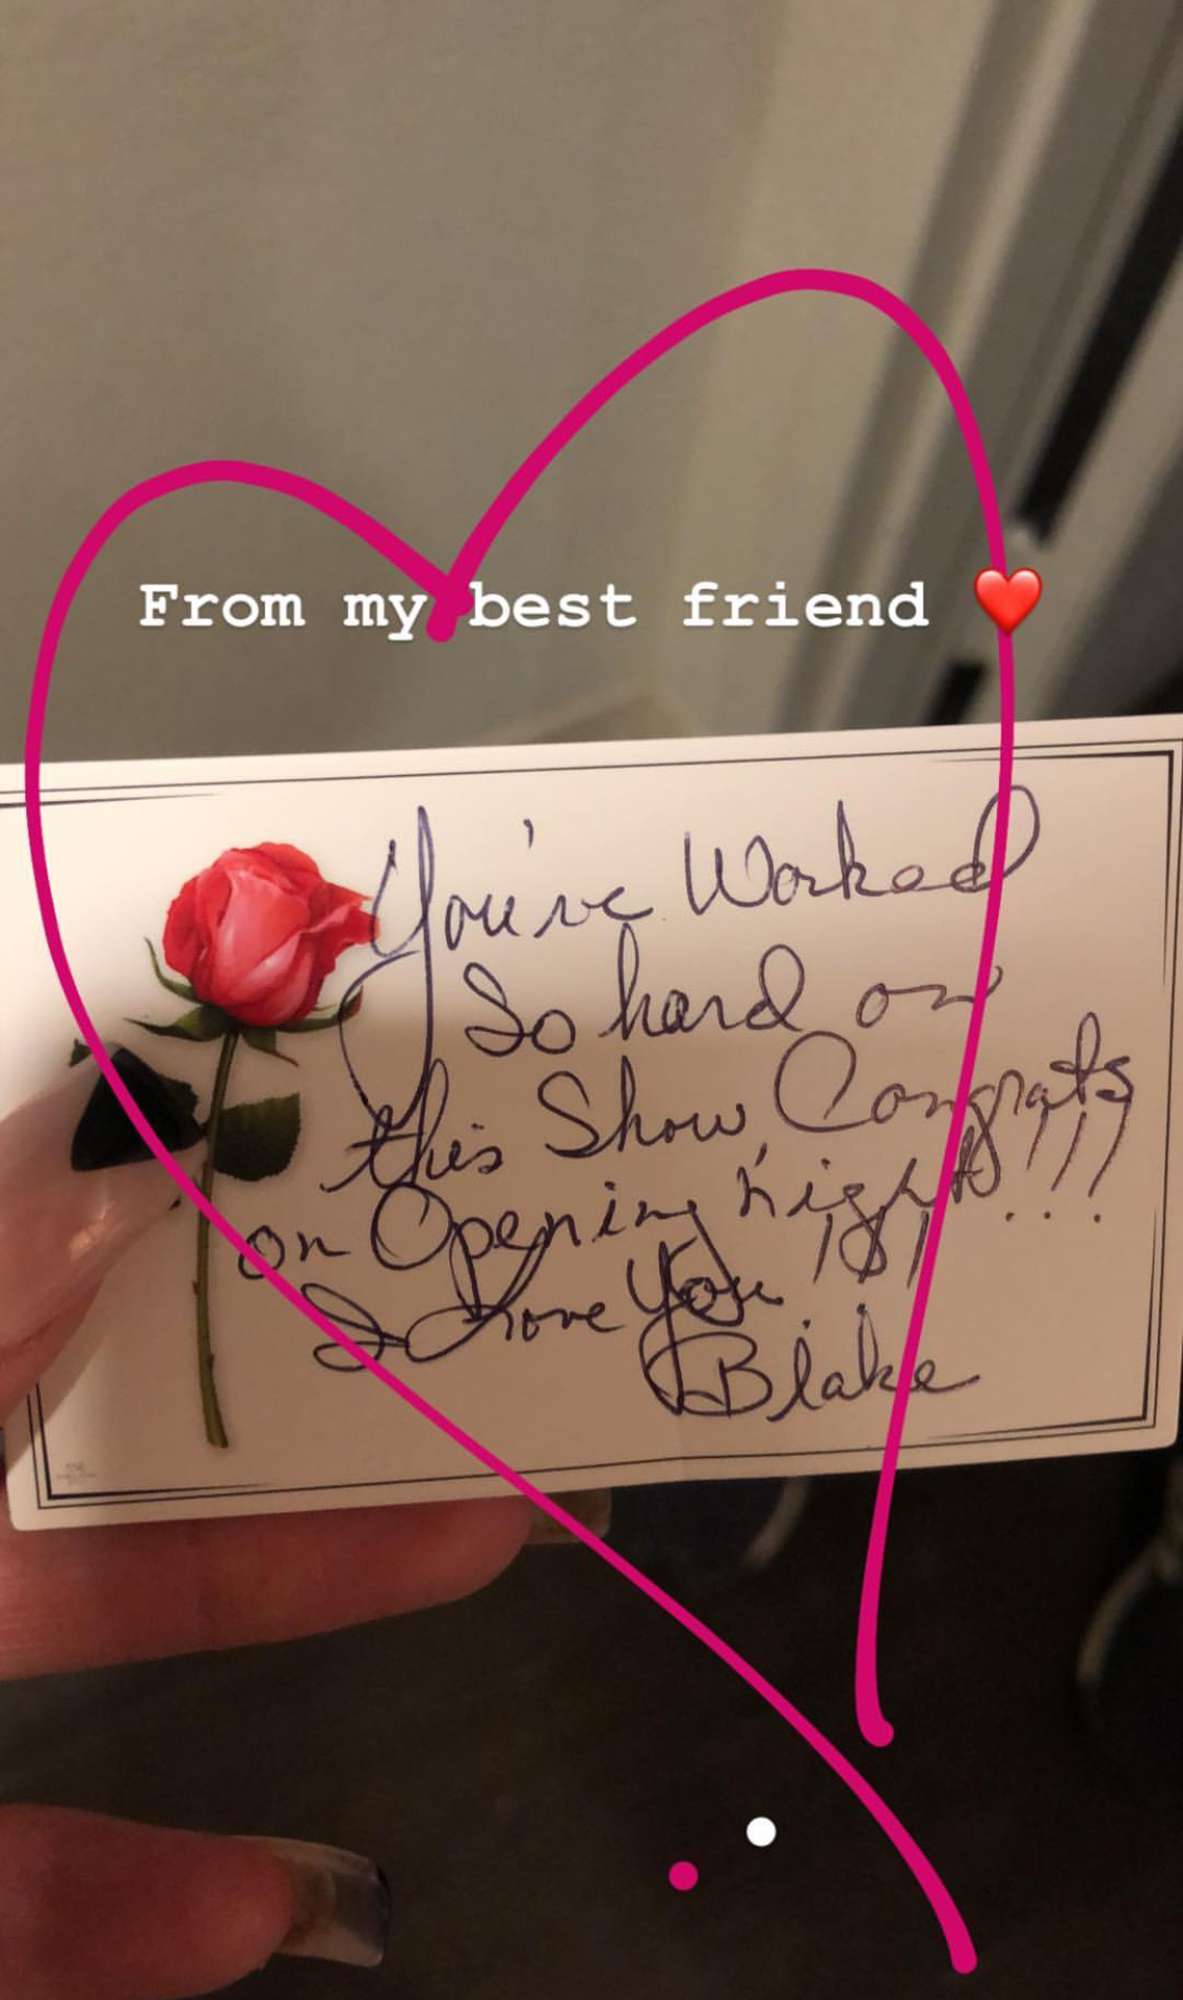 From my best friend ❤️
You've Worked
So hard on
this Show, Congrats
on Opening Night!!!
I Love You !!!
Blake